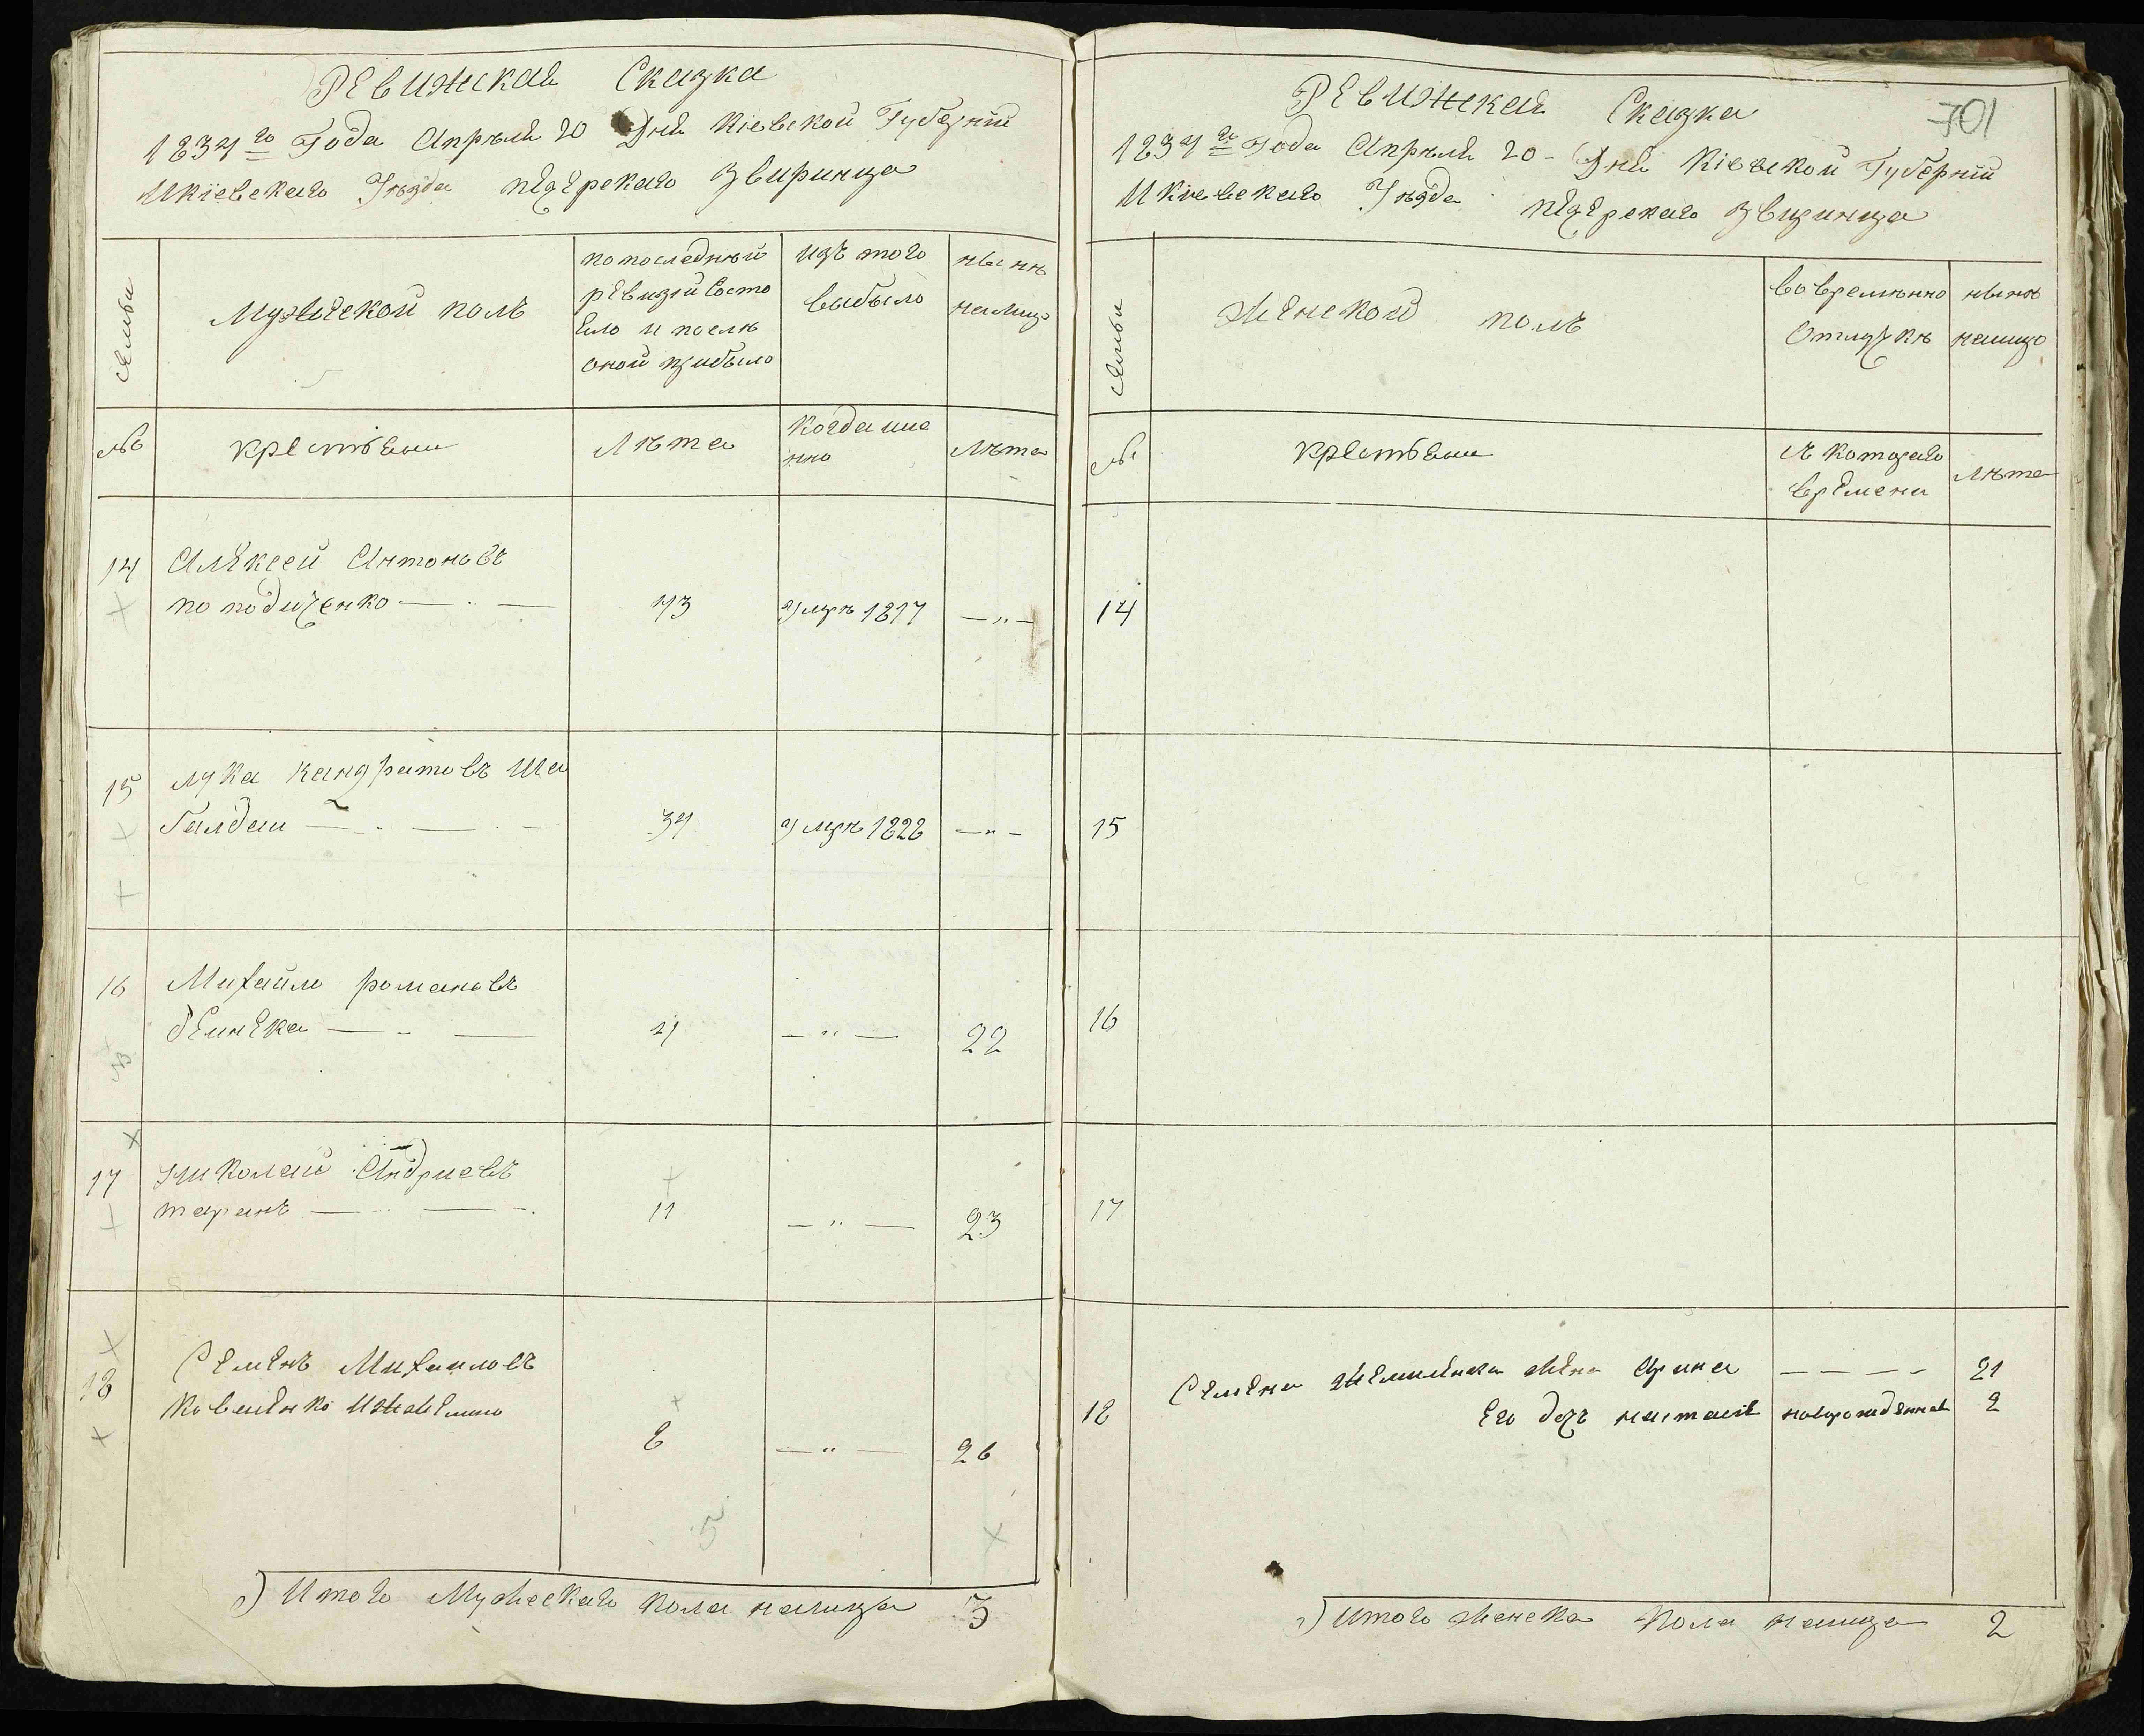 Ревижская Сказка
1834го Года Апреля 20 Дня Кіевской Губерніи
И кіевскаго Уезда печерскаго Звиринца
семьи
Мужеской полъ
по последней
ревизіи состо
яло и после
оной прибыло
изъ того
выбыло
ныне
налицо
№
крестьяни
Лета
когда име
нно
Лета
14
Алексей Антоновъ
попадиченко — " —
43
умре 1817
— " —
15
лука кандратовъ ша
балдаи — " —
34
умре 1828
— " —
16
Михайло романовъ
деинека — —
— " —
22
17
Николай Андриевъ
таранъ — " —
11
— " —
23
18
Семенъ Михаиловъ
8
— " —
26
5
Итого Мужескаго пола налицо 3
701
Ревижская Сказка
1834го Года Апреля 20 Дня Кіевской Губерніи
И кіевскаго Уезда печерскаго звиринца
семьи
Женской полъ
во временно
отлучке
ныне
налицо
№
крестьяни
с котораго
времени
Лета
14
15
16
17
18
Семена жена Ирина — — — — 21
Его дочъ настасія новорожденная 2
Итого женска пола налицо 2